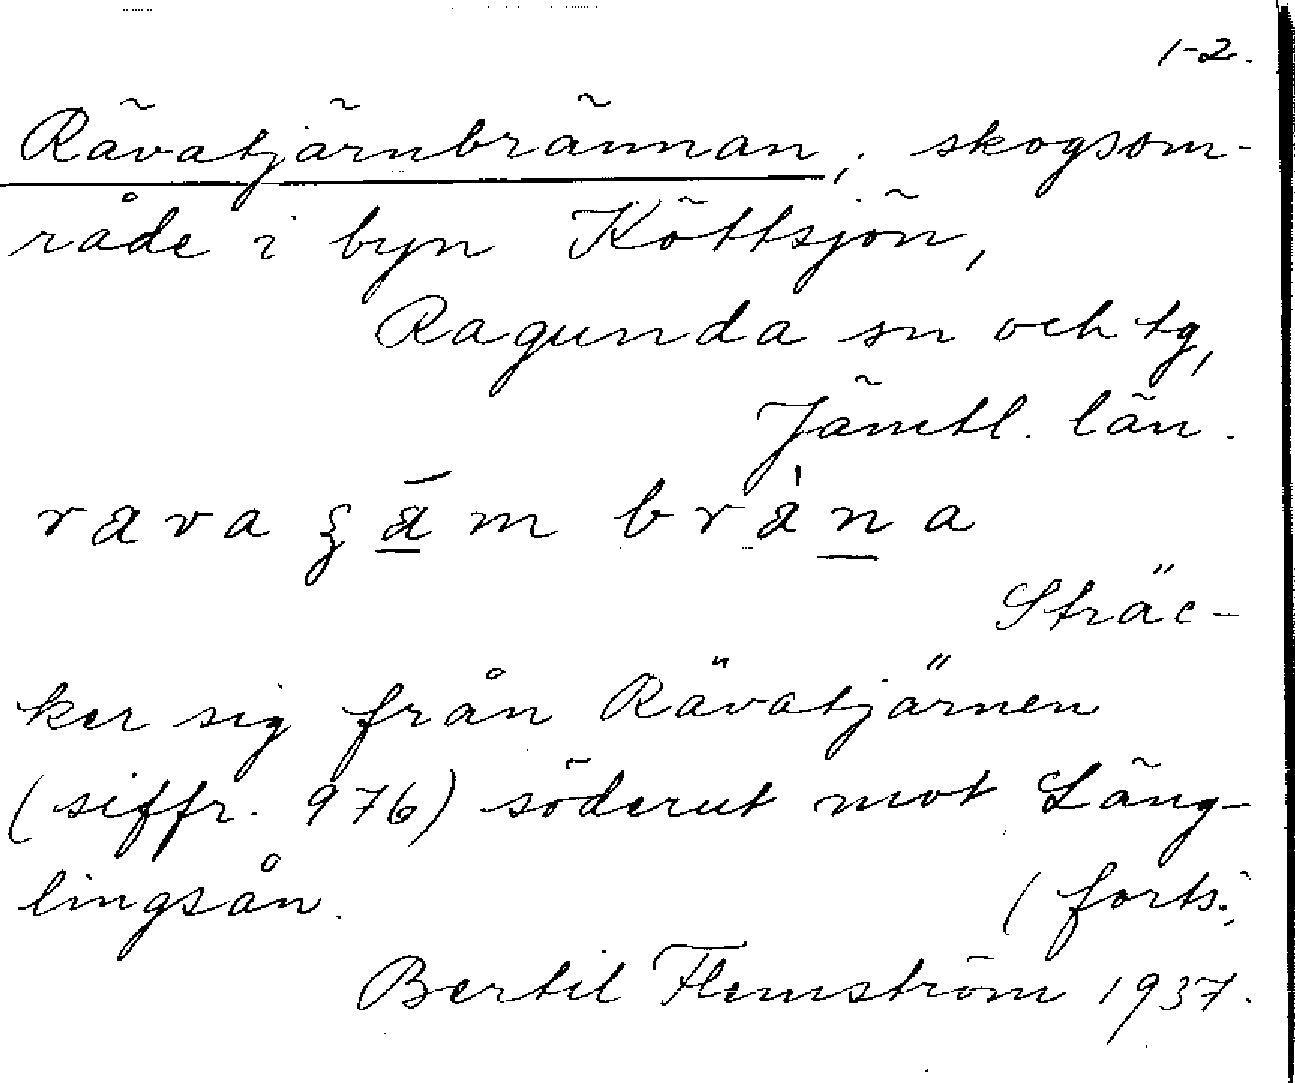 1-2.
Rävatjärnbrännan, skogsom-
råde i byn Köttsjön,
Ragunda sn och tg,
Jämtl. län.
Sträc-
ker sig från Rävatjärnen
(siffr. 976) söderut mot Läng-
lingsån.
(forts.,
Bertil Flemström 1937.